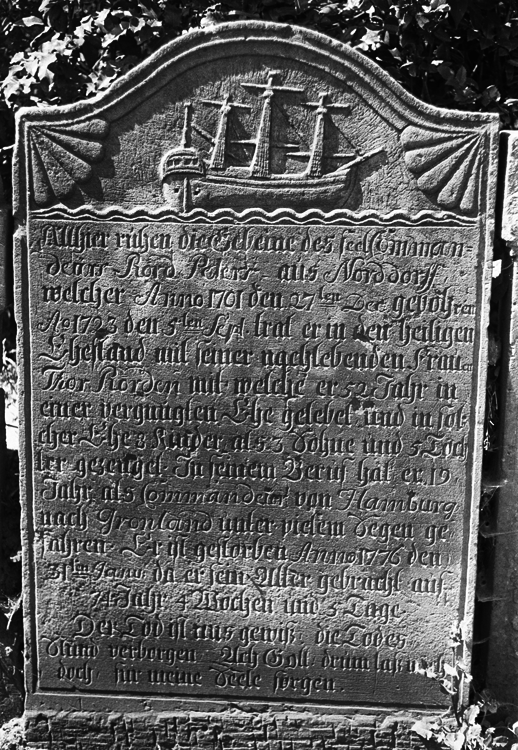 Allhier ruhen die Gebeine des seel Comman-
deurs Kord Peters aus Norddorff
welcher Anno 1701 den 27ten Dec gebohren
Ao 1723 den 5ten Sept trat er in den heiligen
Ehestand mit seiner nachlebenden Frauen
Thor Korden mit welche er 52 Jahr in
einer vergnügten Ehe gelebet und in sol-
cher Ehe 8 Kinder, als 3 Söhne und 5 Töch
ter gezeuget. In seinem Beruf hat er 19
Jahr als Commandeur von Hamburg
nach Grönland unter vielem Segen ge
fahren. Er ist gestorben Anno 1776 den
31ten Janu: da er sein Alter gebracht auf
74 Jahr 4 Wochen und 5 Tage
Der Tod ist uns gewiß: die Todes
Stund verborgen Ach Gott drum laß mich
doch für meine Seele sorgen.